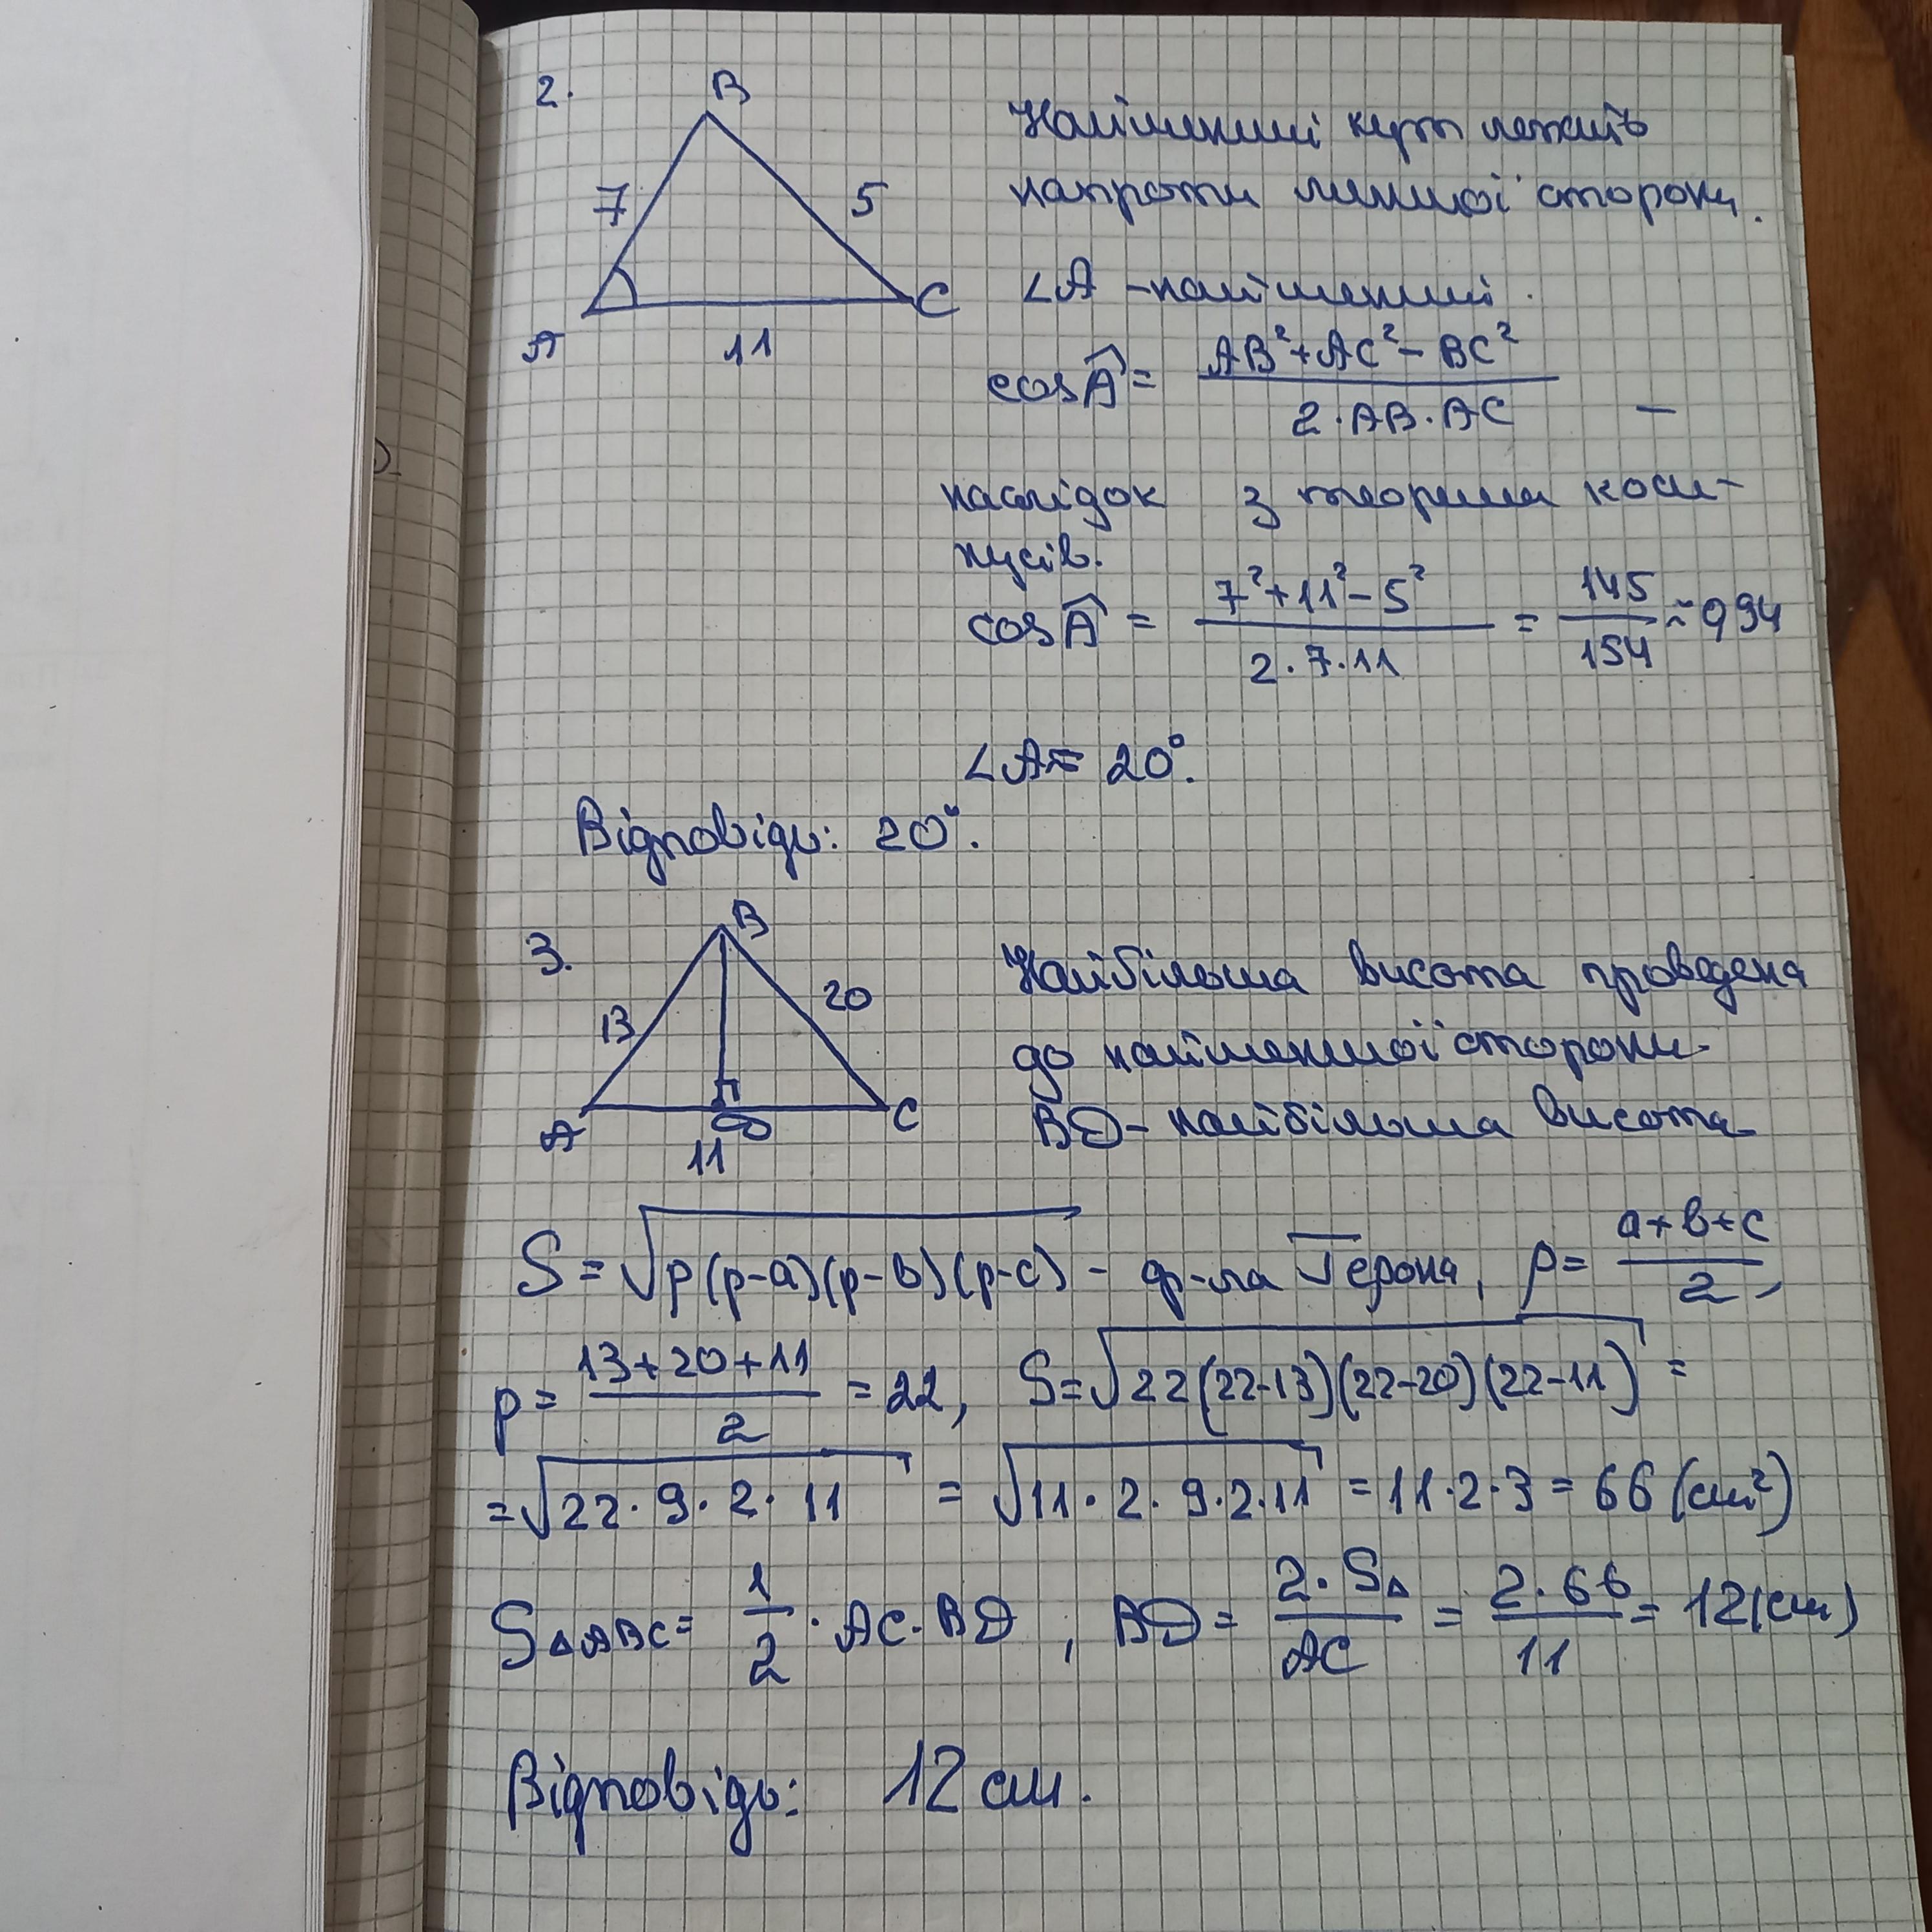 2.
B
7
5
A
11
C
Найменший кут лежить
напроти меншої сторони.
∠A - найменший.
cos A = (AB² + AC² - BC²) / (2·AB·AC) -
наслідок з теореми коси-
нусів.
cos A = (7² + 11² - 5²) / (2·7·11) = 145/154 ≈ 0,94
∠A ≈ 20°.
Відповідь: 20°.
3.
B
13
20
A
D
C
11
Найбільша висота проведена
до найменшої сторони.
BD - найбільша висота
S = √(p(p-a)(p-b)(p-c)) - ф-ла Герона, p = (a+b+c)/2,
p = (13+20+11)/2 = 22, S = √(22(22-13)(22-20)(22-11)) =
= √(22·9·2·11) = √(11·2·9·2·11) = 11·2·3 = 66 (см²)
S△ABC = 1/2 · AC·BD, BD = (2·S△)/AC = (2·66)/11 = 12 (см)
Відповідь: 12 см.